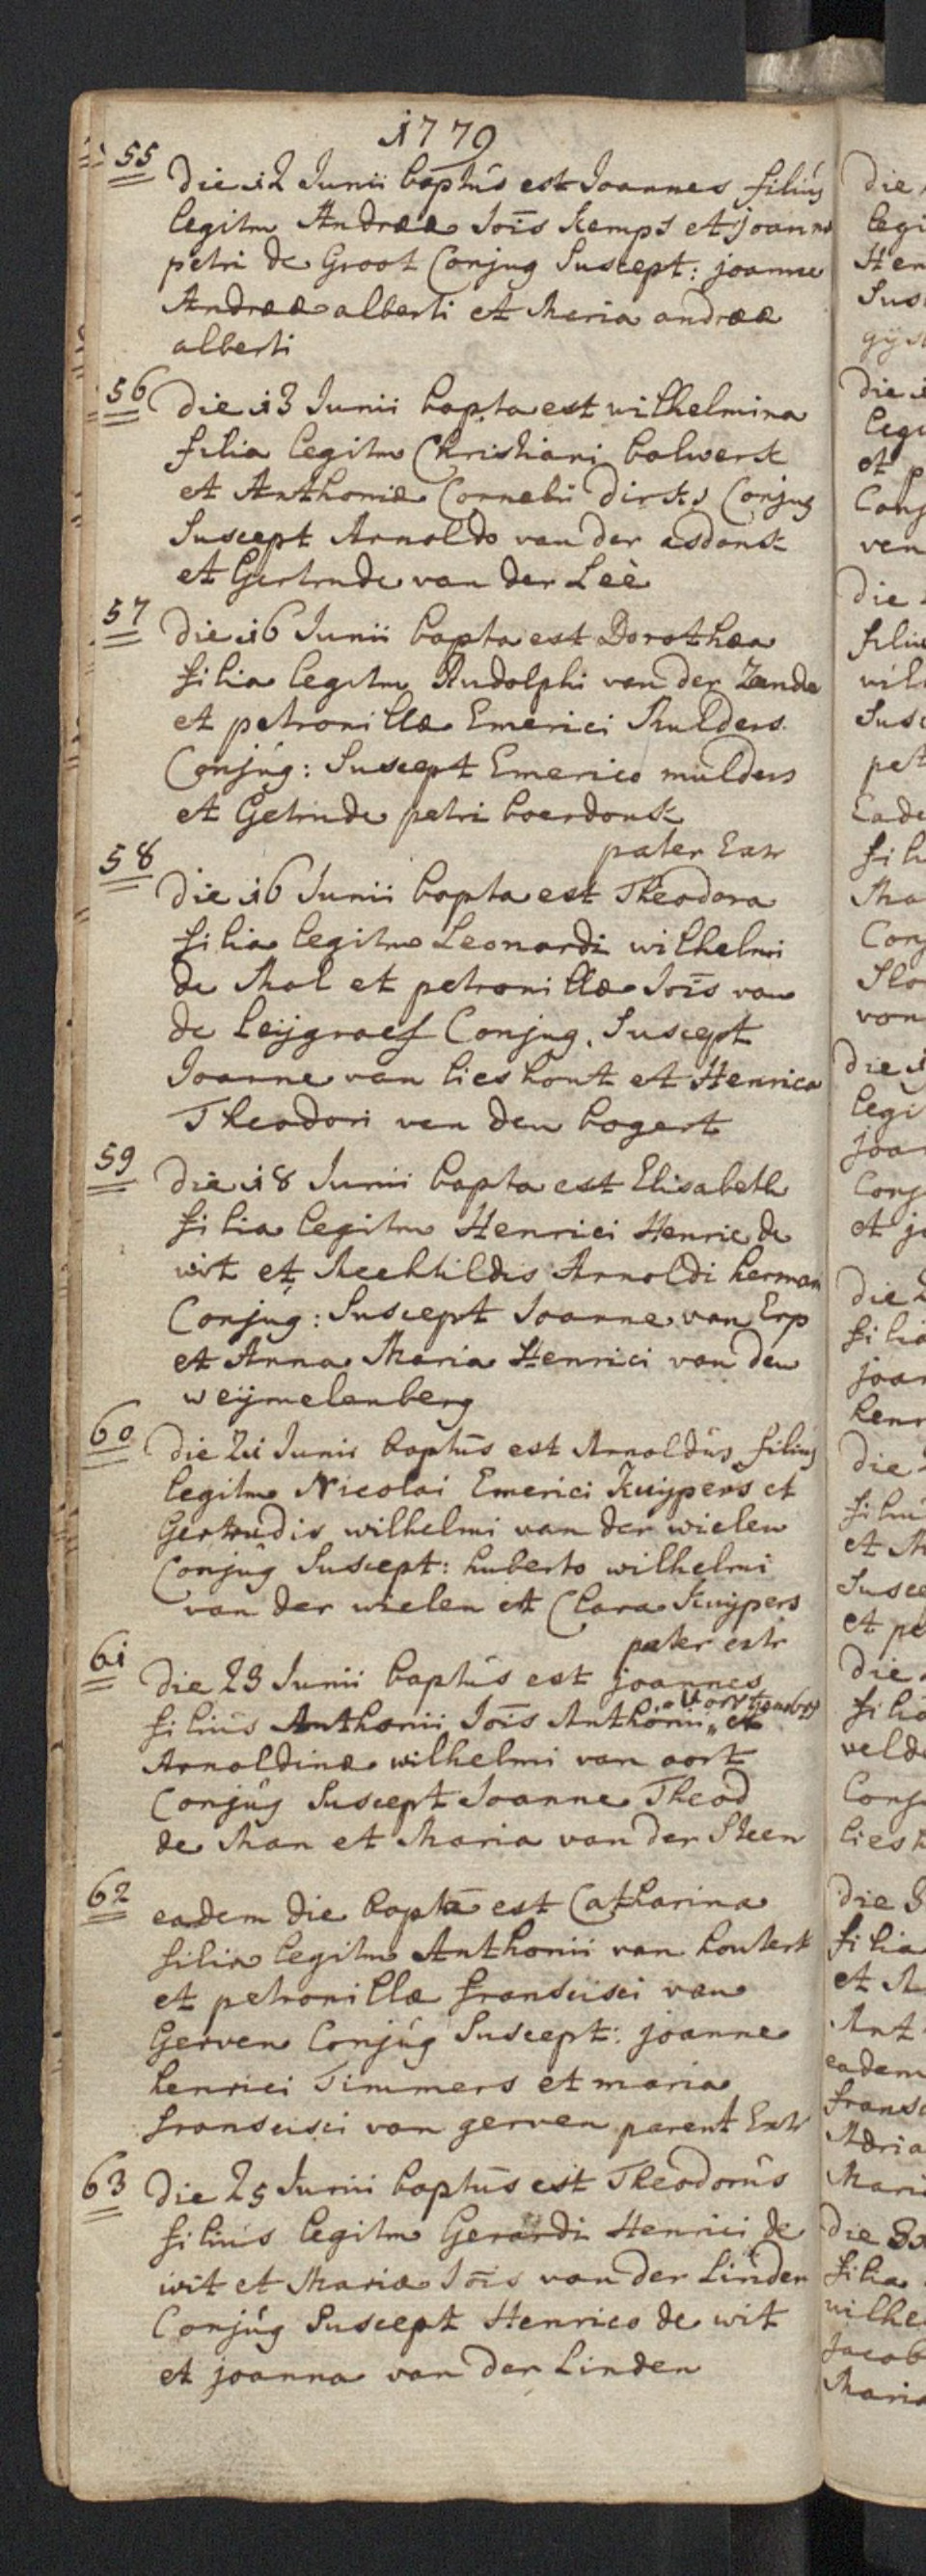 1779
55 die 12 Junii baptūs est Joannes filius
legitm Andreæ Jois Kemps et joannæ
petri de Groot Conjug Suscept: joanne
Andreæ alberti et Maria andreæ
alberti
56 die 13 Junii bapta est wilhelmina
filia legitm Christiani bolwerk
et Anthoniæ Cornelii dirks Conjug
Suscept Arnoldo van der asdonk
et Gertrude van der Leè
57 die 16 Junii bapta est Dorothea
filia legitm Rudolphi van der Zande
et petronillæ Emerici Mulders
Conjug: Suscept Emerico mulders
et Getrude petri boerdonk
pater Extr
58 die 16 Junii bapta est Theodora
filia legitm Leonardi wilhelmi
de Mol et petronillæ Jois van
de Leijgraef Conjug. Suscept
Joanne van lieshout et Henrica
Theodori van den bogert
59 die 18 Junii bapta est Elisabeth
filia legitm Henrici Henric de
wit et Mechtildis Arnoldi herman
Conjug: Suscept Joanne van Erp
et Anna Maria Henrici van den
weijmelenberg
60 die 21 Junii baptūs est Arnoldus filius
legitm Nicolai Emerici Kuijpers et
Gertrudis wilhelmi van der wielen
Conjug Suscept: huberto wilhelmi
van der wielen et Clara Kuijpers
pater extr
61 die 23 Junii baptūs est joannes
filius Anthonii Jois Anthonii et
Arnoldinæ wilhelmi van oort
Conjug Suscept Joanne Theod
de Man et Maria van der Steen
62 eadem die bapta est Catharina
filia legitm Anthonii van houtert
et petronillæ fransisci van
Gerven Conjug Suscept: joanne
henrici Timmers et maria
fransisci van gerven parent Extr
63 die 25 Junii baptūs est Theodorus
filius legitm Gerardi Henrici de
wit et Mariæ Jois van der Linden
Conjug Suscept Henrico de wit
et joanna van der Linden